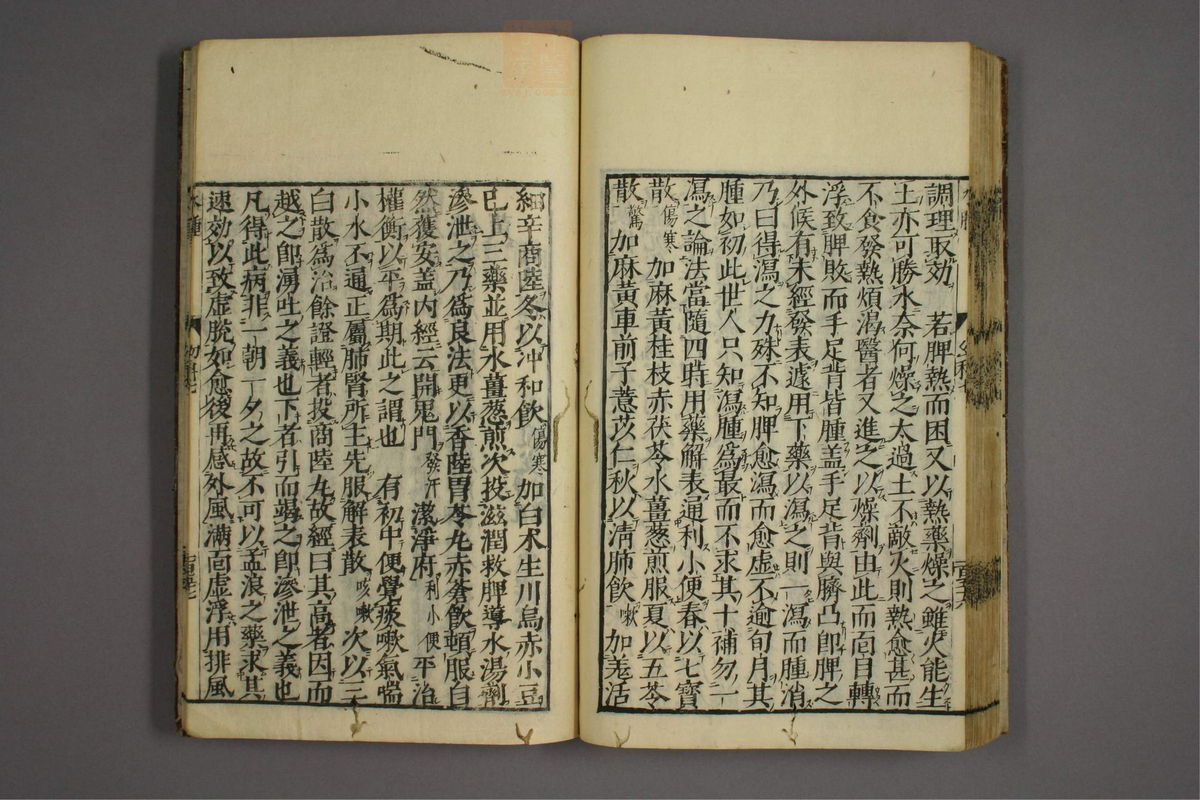 調理取効　若脾熱而困又以熱藥燥之雖火能生
土亦可勝水奈何燥之太過土不敵火則熱愈甚而
不食發熱煩渴醫者又進之以燥劑由此而靣目轉
浮致脾敗而手足背皆腫盖手足背與臍凸即脾之
外候有未經發表遽用下藥以瀉之則一瀉而腫消
乃曰得瀉之力殊不知脾愈瀉而愈虚不逾旬月其
腫如初此世人只知瀉腫爲最而不求其十補勿一
瀉之論法當隨四時用藥解表通利小便春以七寶
散傷寒加麻黃桂枝赤茯苓水薑葱煎服夏以五苓
散驚加麻黃車前子薏苡仁秋以清肺飲嗽加羗活
細辛商陸冬以冲和飲傷寒加白术生川烏赤小豆
已上三藥並用水薑葱煎次投滋潤救脾導水湯劑
滲泄之乃爲良法更以香陸胃苓丸赤蒼飲頓服自
然獲安盖内經云開鬼門發汗潔淨府利小便平治
權衡以平爲期此之謂也　有初中便覺痰嗽氣喘
小水不通正屬肺腎所主先服解表散咳嗽次以三
白散爲治餘證輕者投商陸丸故經曰其高者因而
越之即湧吐之義也下者引而竭之即滲泄之義也
凡得此病非一朝一夕之故不可以孟浪之藥求其
速効以致虚脫如愈後再感外風滿靣虚浮用排風
水腫